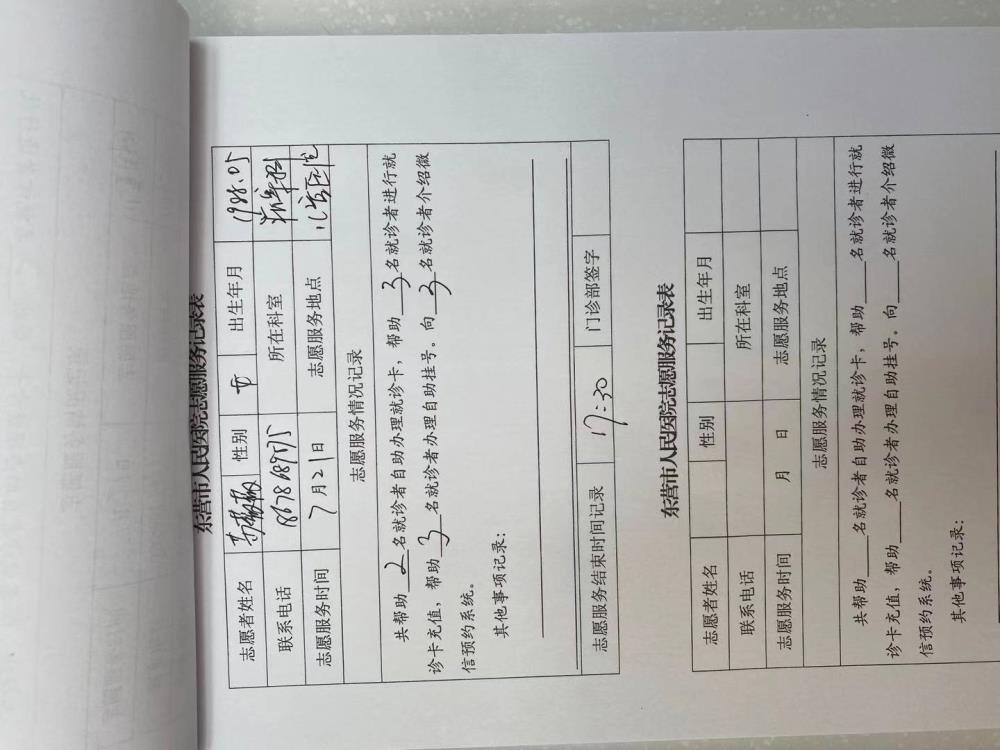 东营市人民医院志愿服务记录表
志愿者姓名 性别 女 出生年月 1988.05
联系电话 所在科室
志愿服务时间 7月21日 志愿服务地点
志愿服务情况记录
共帮助2名就诊者自助办理就诊卡，帮助3名就诊者进行就
诊卡充值，帮助3名就诊者办理自助挂号。向3名就诊者介绍微
信预约系统。
其他事项记录：
志愿服务结束时间记录 17:30 门诊部签字
东营市人民医院志愿服务记录表
志愿者姓名 性别 出生年月
联系电话 所在科室
志愿服务时间 月 日 志愿服务地点
志愿服务情况记录
共帮助____名就诊者自助办理就诊卡，帮助____名就诊者进行就
诊卡充值，帮助____名就诊者办理自助挂号。向____名就诊者介绍微
信预约系统。
其他事项记录：